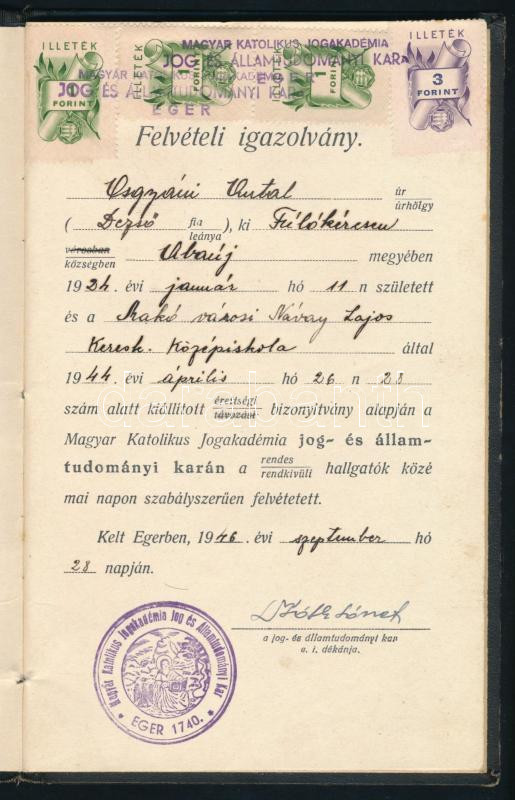 ILLETÉK ILLETÉK ILLETÉK ILLETÉK
MAGYAR KATOLIKUS JOGAKADÉMIA
JOG ÉS ÁLLAMTUDOMÁNYI KARA
EGER
MAGYAR KATOLIKUS JOGAKADÉMIA
JOG ÉS ÁLLAMTUDOMÁNYI KARA
EGER
1 FORINT
1 FORINT
3 FORINT
Felvételi igazolvány.
Antal úr
úrhölgy
( Dezső fia
leánya ), ki Fülókércsen
városban
községben Abaúj megyében
1924. évi január hó 11 n született
és a Makó városi Návay Lajos
Keresk. Középiskola által
1944. évi április hó 26 n 28
szám alatt kiállított érettségi
távozási bizonyítvány alapján a
Magyar Katolikus Jogakadémia jog- és állam-
tudományi karán a rendes
rendkívüli hallgatók közé
mai napon szabályszerűen felvétetett.
Kelt Egerben, 1946. évi szeptember hó
28 napján.
a jog- és államtudományi kar
e. i. dékánja.
Magyar Katolikus Jogakadémia Jog és Államtudományi Kar
EGER 1740.
darabanth